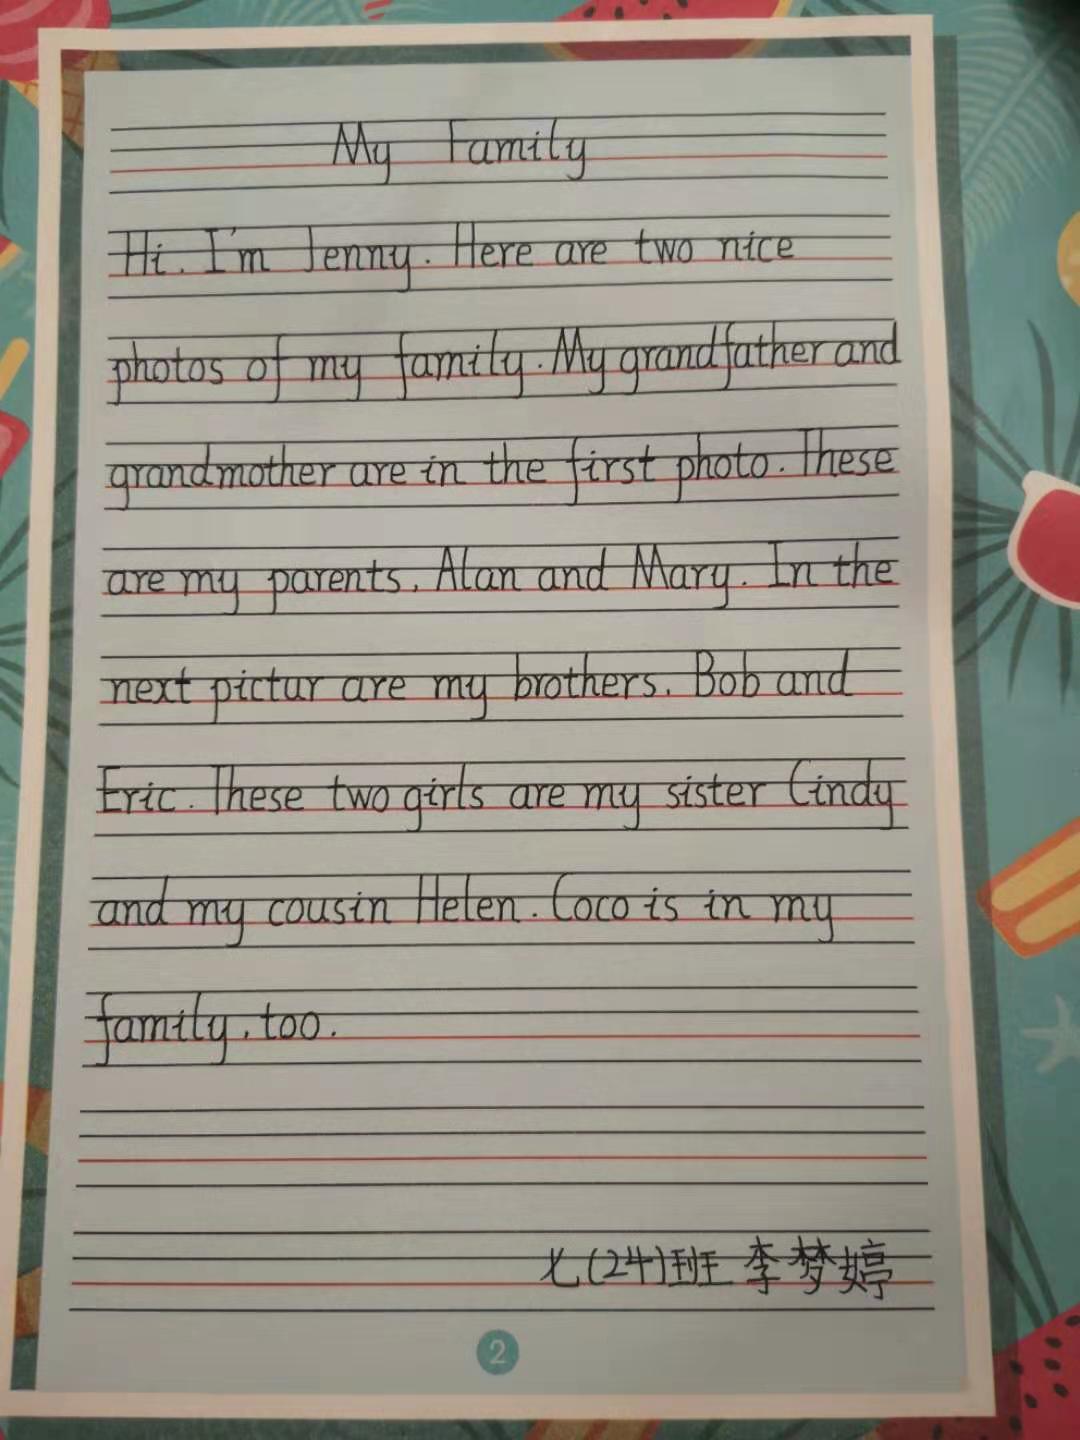 My Family
Hi. I'm Jenny. Here are two nice
photos of my family. My grandfather and
grandmother are in the first photo. These
are my parents, Alan and Mary. In the
next pictur are my brothers. Bob and
Eric. These two girls are my sister Cindy
and my cousin Helen. Coco is in my
family, too.
七(24)班 李梦婷
2